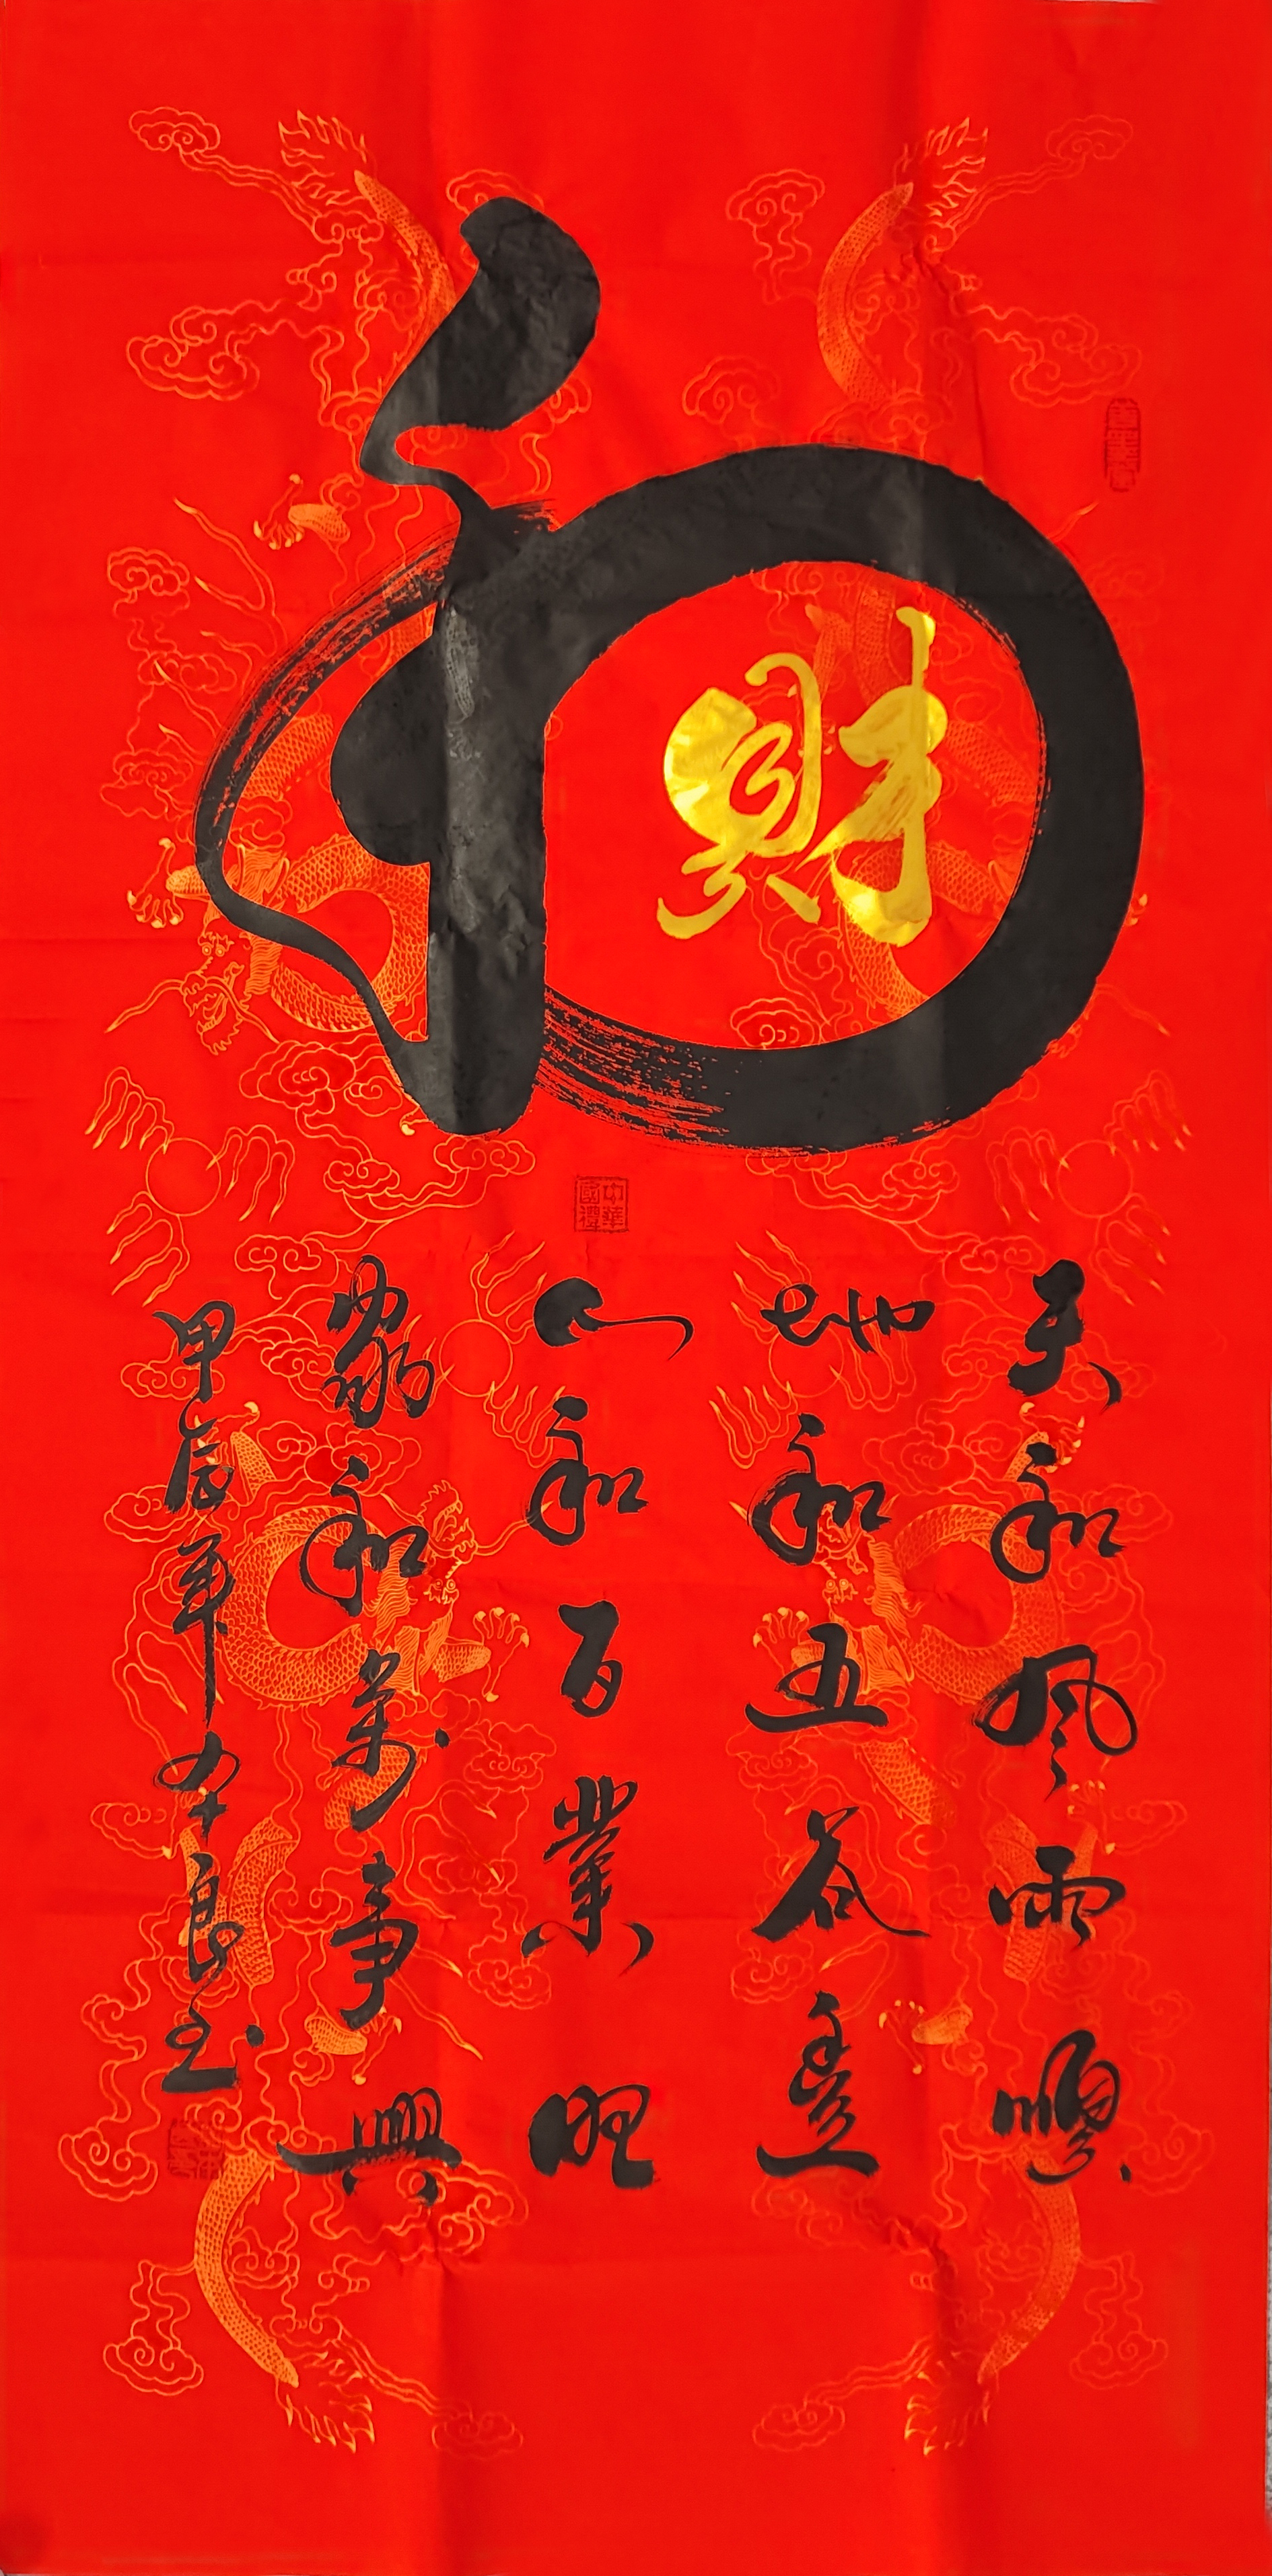 和
財
中華國禮
天和風雨順
地和五谷豐
人和百業旺
家和萬事興
甲辰年 良玉